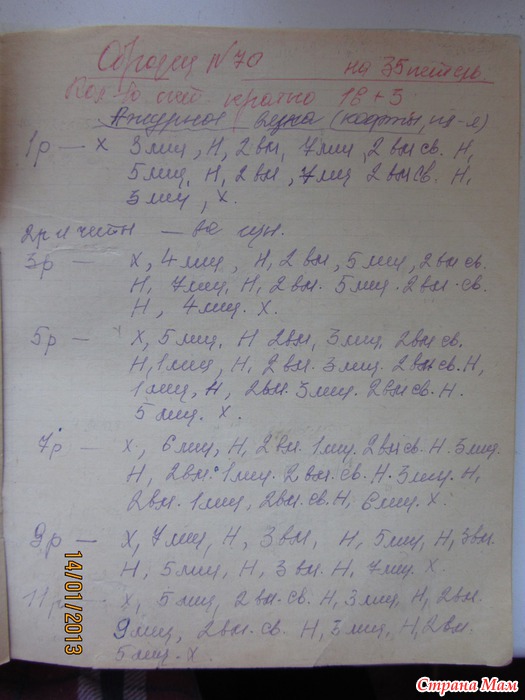 Образец N 70 на 35 петель
Кол-во петель кратно 16 + 3
Ажурное вязка (кофты, пл-я)
1р — X 3лиц, Н, 2вм, 7лиц, 2вм св. Н,
5лиц, Н, 2вм, 7лиц 2вм св. Н,
3лиц, X.
2р и четн — все изн.
3р — X, 4лиц, Н, 2вм, 5лиц, 2вм св.
Н, 7лиц, Н, 2вм. 5лиц. 2вм. св.
Н, 4лиц. X.
5р — X, 5лиц, Н 2вм, 3лиц, 2вм св.
Н, 1лиц, Н, 2вм. 3лиц. 2вм св. Н,
1лиц, Н, 2вм. 3лиц. 2вм св. Н.
5лиц. X.
7р — X, 6лиц, Н, 2вм. 1лиц. 2вм св. Н. 3лиц.
Н, 2вм. 1лиц. 2вм. св. Н. 3лиц. Н,
2вм. 1лиц, 2вм. св. Н, 6лиц. X.
9р — X, 7лиц, Н, 3вм, Н, 5лиц, Н, 3вм.
Н, 5лиц, Н, 3вм. Н, 7лиц. X.
11р — X, 5лиц, 2вм. св. Н, 3лиц, Н, 2вм.
9лиц, 2вм. св. Н, 3лиц, Н, 2вм.
5лиц. X.
14/01/2013
Страна Мам